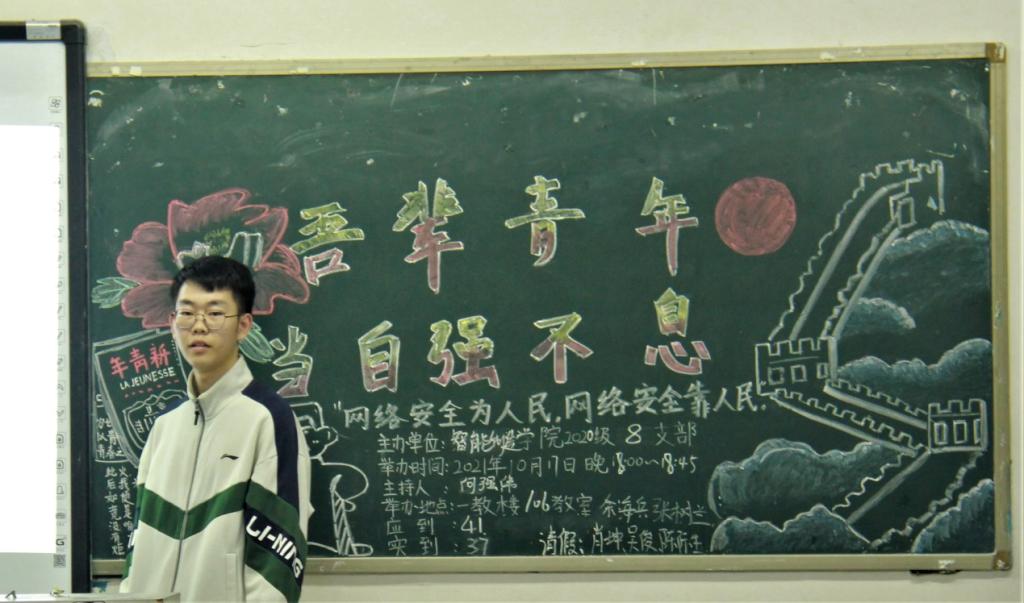 吾辈青年
当自强不息
新青年
LA JEUNESSE
"网络安全为人民,网络安全靠人民.
主办单位:智能制造学院2020级 8 支部
举办时间:2021年10月17日 晚18:00~18:45
主持人:何强伟
举办地点:一教楼106教室
应到:41
实到:37 请假:肖坤吴俊
LI-NING